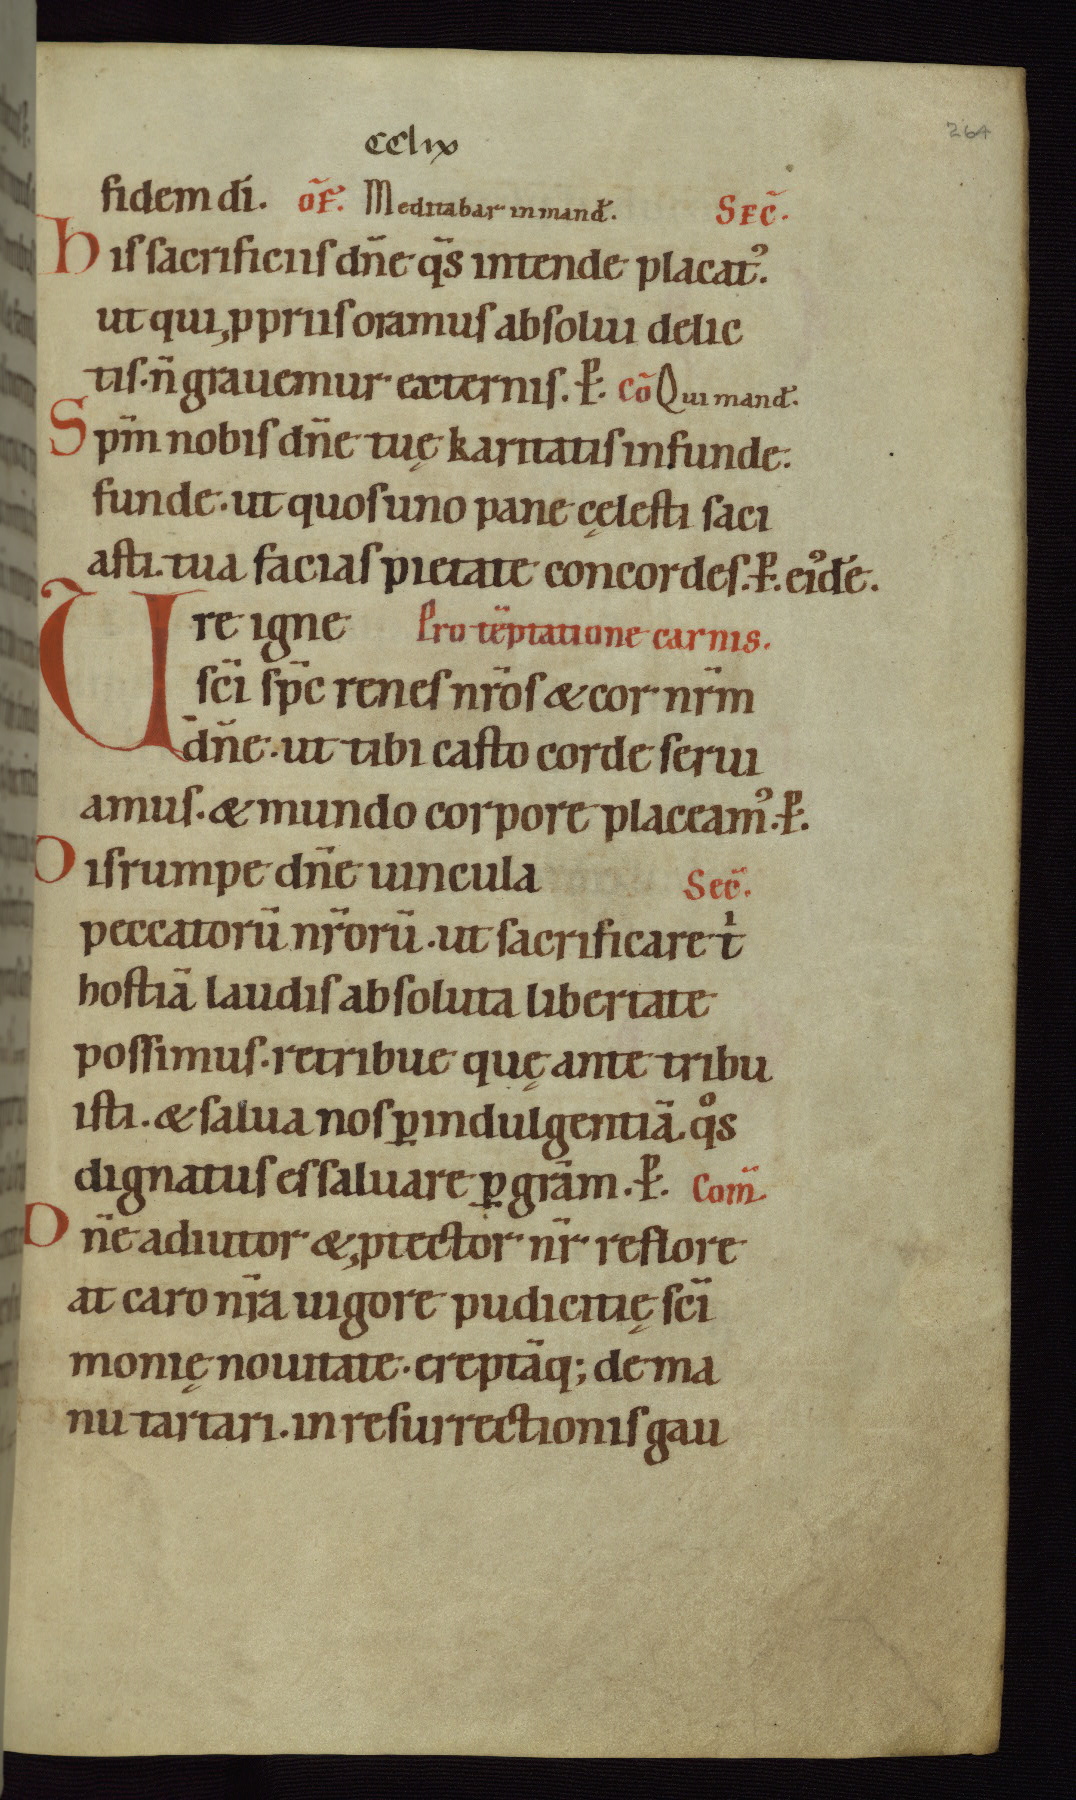 CClix
264
fidem dī. of̄. Meditabar in mand̄. Sec̄.
His sacrificiis dn̄e qs̄ intende placat᾽.
ut qui ꝓpriis oramus absolui delic
tis. n̄ grauemur externis. P̄. co᷒ Qui mand̄.
Spm̄ nobis dn̄e tuę karitatis infunde.
funde. ut quos uno pane cęlesti saci
asti. tua facias pietate concordes. P̄. ei᾽dē.
Ure igne Pro tēptatione carnis.
sc̄i sp̄c renes nr̄os & cor nr̄m
dn̄e. ut tibi casto corde serui
amus. & mundo corpore placeam᾽. P̄.
Disrumpe dn̄e uincula Sec̄.
peccatorū nr̄orū. ut sacrificare tⁱ
hostiā laudis absoluta libertate
possimus. retribue quę ante tribu
isti. & salua nos ꝑ indulgentiā. qͦs
dignatus es saluare ꝑ grām. P̄. Com̄
Dn̄e adiutor & ꝓtector nr̄ reflore
at caro nr̄a uigore pudicitię sc̄i
monię nouitate. ereptāq; de ma
nu tartari. in resurrectionis gau